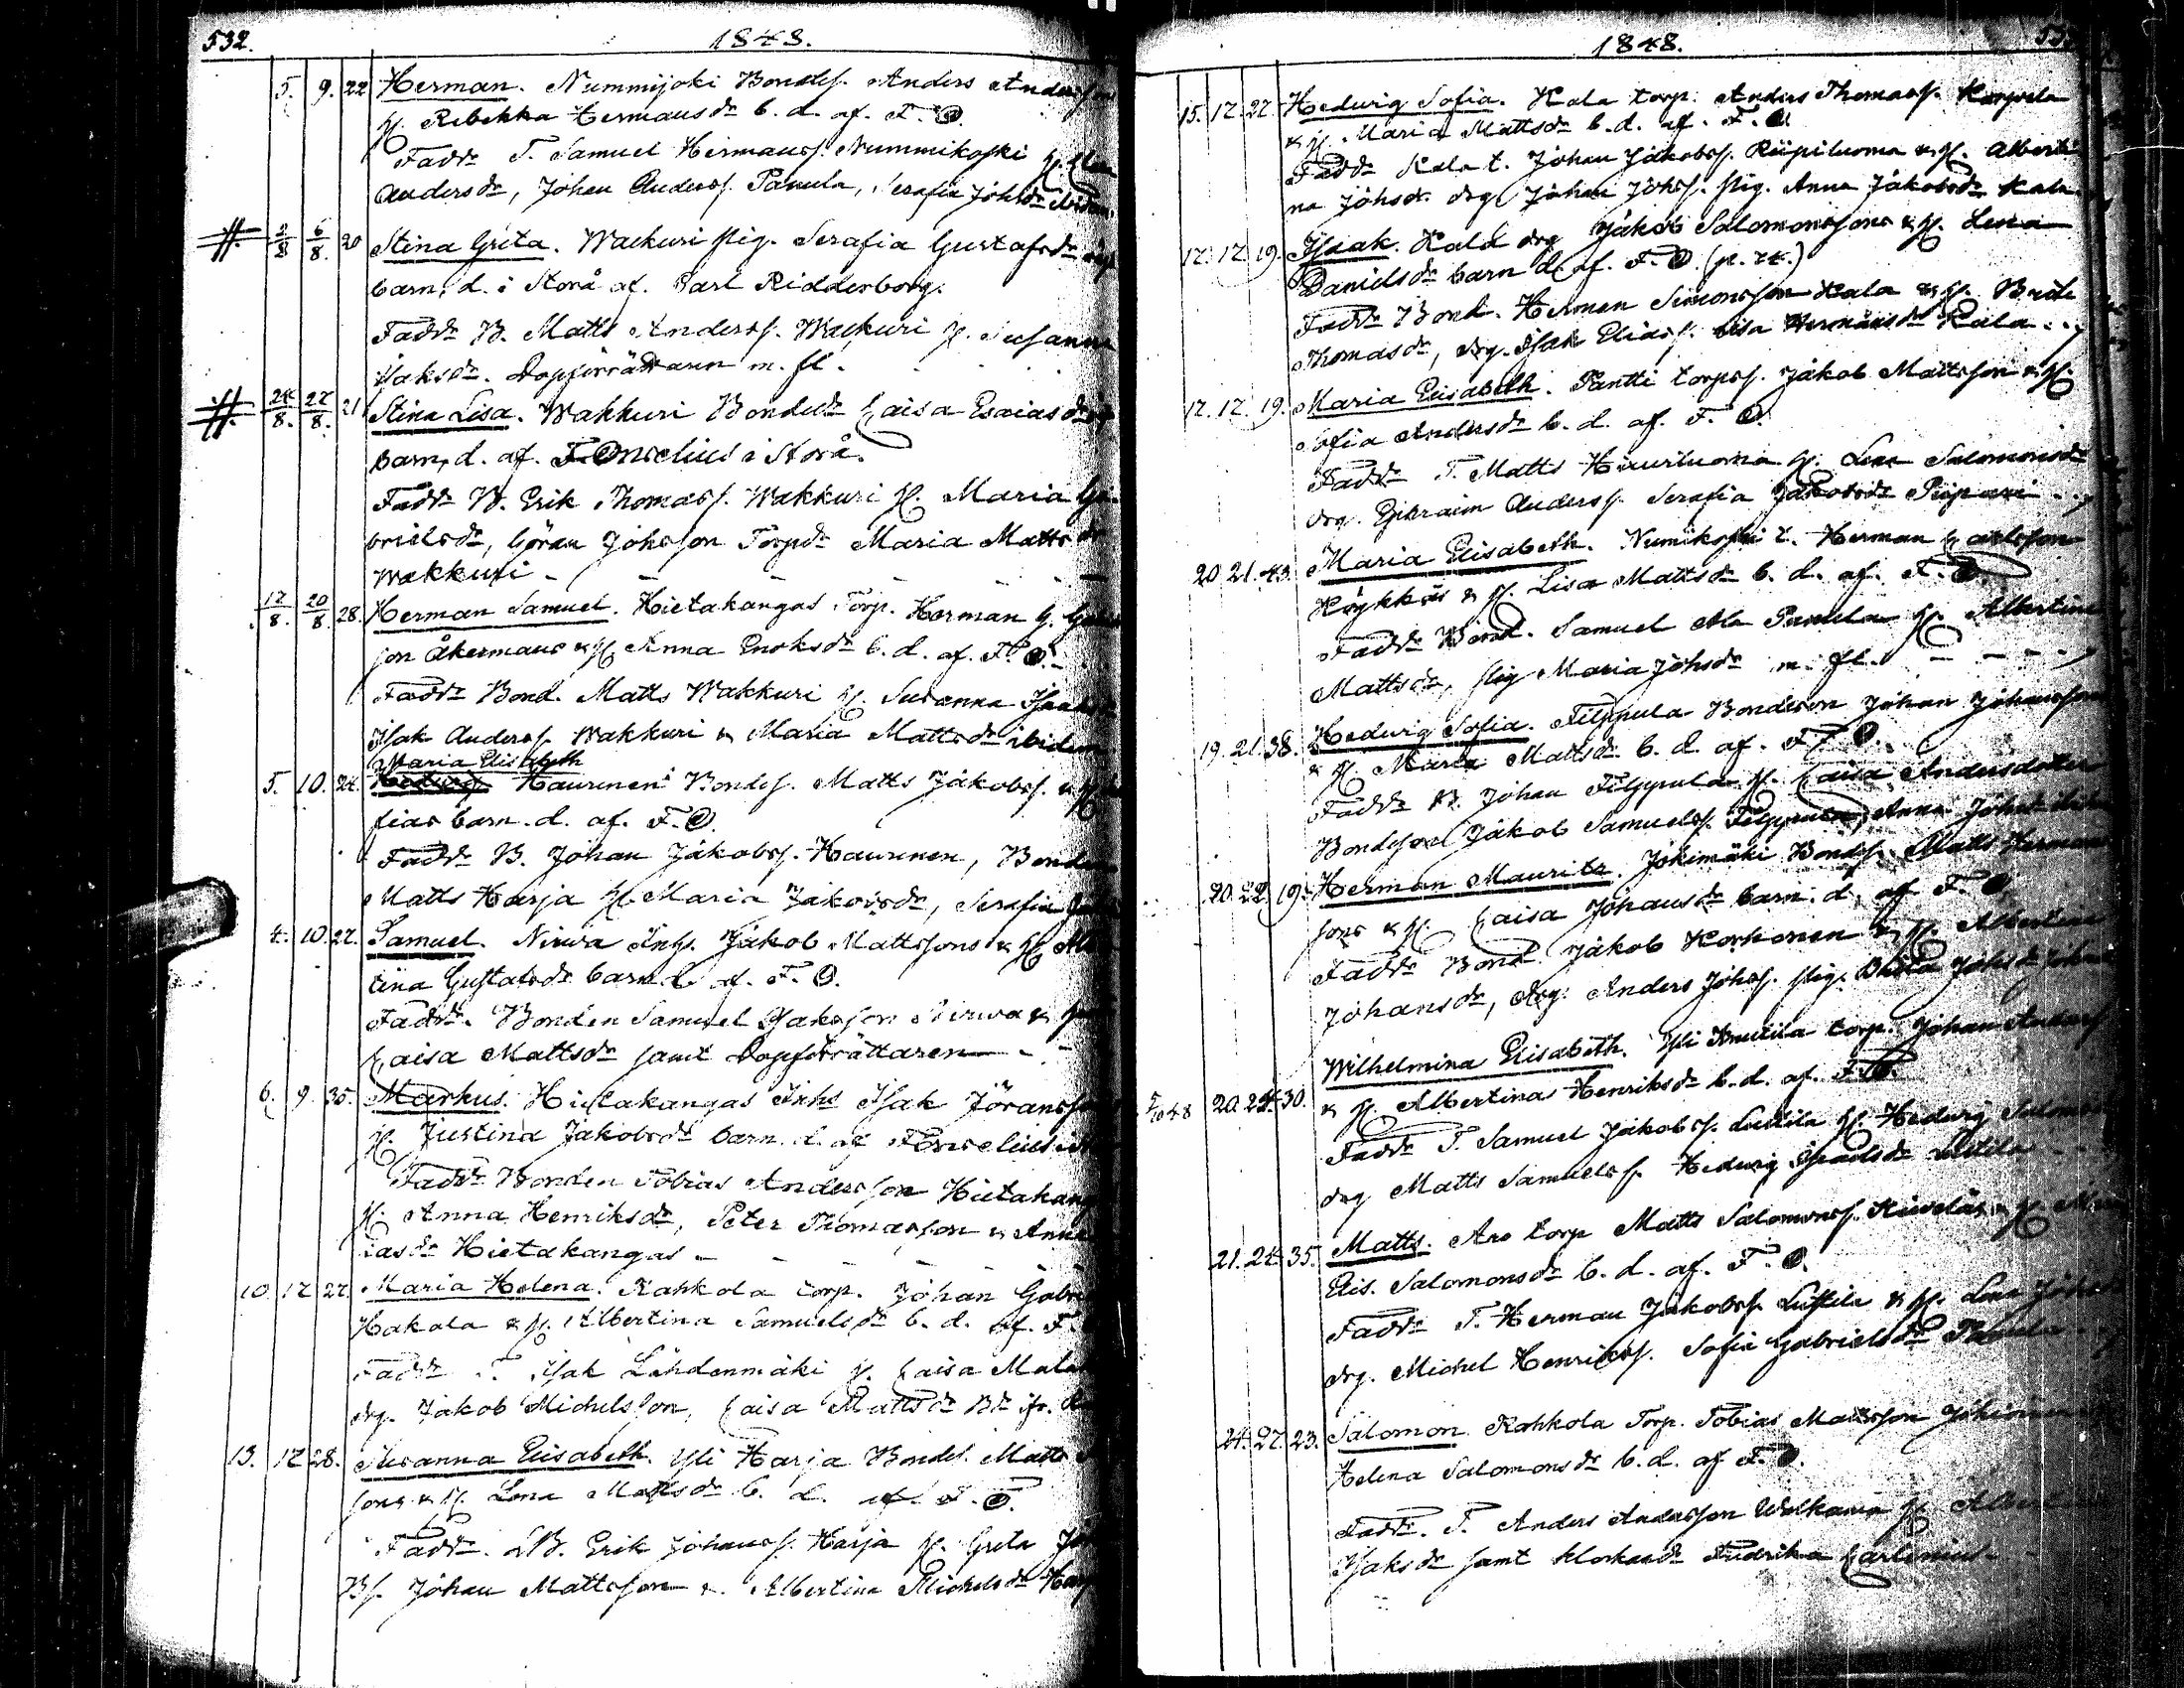 532. 1848.
5. 9. 22 Herman. Nummijoki Bondes. Anders Anders
H. Rebekka Hermansdr b. d. af. F. O.
Faddr T. Samuel Hermans. Nummikoski H.
Andersdr, Johan Anderss. Panula, Serafia Johsdr ibidem.
2/8 6/8 20 Stina Greta. Wackuri pig. Serafia Gustafsdr
barn, d. i Storå af. Carl Ridderborg.
Faddr B. Matts Anderss. Wackuri H. Susanna
Isaksdr. Dopförrättaren m. fl.
24/8. 27/8. 21 Stina Lisa. Wakkuri Bondedr Caisa Esaiasdr
barn, d. af. F. Onselius i Storå.
Faddr B. Erik Thomass. Wakkuri H. Maria Ga-
brielsdr, Göran Johsson Torpdr Maria Mattsdr
Wakkuri -
17/8. 20/8. 28. Herman Samuel. Hietakangas Torp. Herman G.
son Åkermans & H. Anna Enoksdr b. d. af. F. O.
Faddr Bond. Matts Wakkuri H. Susanna Isaks
Isak Anderss. Wakkuri & Maria Mattsdr ibidem
Maria Elisabeth
5. 10. 24. Hedvig Haurunen Bondes. Matts Jakobs. & H.
fias barn. d. af. F. O.
Faddr B. Johan Jakobss. Haurunen, Bonden
Matts Harja H. Maria Jakobsdr, Serafia
4. 10. 27. Samuel. Nirwa Inhs. Jakob Mattssons & H. Al
tina Gustafsdr barn d. af. F. O.
Faddr. Bonden Samuel Isaksson Nirwa &
Caisa Mattsdr samt Dopförrättaren -
6. 9. 35. Markus. Hietakangas Inhs Isak Jöranss
H. Justina Jakobsdr barn d. af F Onselius
Faddr Bonden Tobias Andersson Hietakang
H. Anna Henriksdr, Peter Thomasson & Anna
iasdr Hietakangas -
10. 17 27. Maria Helena. Kahkola torp. Johan Gabri
Hakala & H. Albertina Samuelsdr b. d. af. F.
Faddr T. Isak Lähdenmäki H. Caisa
drg. Jakob Michelsson, Caisa Mattsdr
13. 17 28. Susanna Elisabeth. Yli Harja Bondes. Matts
sons & H. Lena Mattsdr b. d. af. F. O.
Faddr. B. Erik Johanss. Harja H. Greta
Bs. Johan Mattsson &. Albertina Michelsdr Harj
1848. 533
15. 17. 27. Hedwig Sofia. Kala torp. Anders Thomass. Korpela
& H. Maria Mattsdr b. d. af. F. O.
Faddr Kala t. Johan Jakobss. Riipiluoma & H. Alberti
na Johsdr drg Johan Johss. pig. Anna Jakobsdr Kala
17. 17. 19. Isaak. Kala drg Jakob Salomonssons & H. Lena
Danielsdr barn d. af. F. O. (p. 74.)
Faddr Bond. Herman Simonsson Kala & H. Brita
Thomasdr, drg. Isak Eliass. Lisa Hermansdr Kala..,
17. 17. 19. Maria Elisabeth. Pantti torps. Jakob Mattsson & H.
Sofia Andersdr b. d. af. F. O.
Faddr T. Matts Hiuurluoma H. Lena Salomonsdr
drg. Ephraim Anderss. Serafia Jakobsdr
20 21. 43. Maria Elisabeth. Numikoski t. Herman Carlsson
Röykkäs & H. Lisa Mattsdr b. d. af. F. O.
Faddr Bond. Samuel Ala Panula H. Albertina
Mattsdr, pig Maria Johsdr m. fl.
19. 21. 38. Hedwig Sofia. Filppula Bondeson Johan Johansson
& H. Maria Mattsdr b. d. af. F. O.
Faddr B. Johan Filppula H. Caisa Andersdotter
Bondeson Jakob Samuelss. Filppula, Anna Johsdr
20. 22. 19. Herman Mauritz. Jokimäki Bondes. Matts Herman
sons & H. Caisa Johansdr barn. d. af F. O.
Faddr Bond. Jakob Korhonen & H. Albertina
Johansdr, drg. Anders Johss. pig. Brita Johsdr
20. 24. 30. Wilhelmina Elisabeth. Yli Knuuttila torp. Johan Anders
& H. Albertinas Henriksdr b. d. af. F. O.
Faddr T. Samuel Jakobs. Luttila H. Hedwig Salomo
drg Matts Samuelss. Hedwig Isaaksdr Luttila
21. 24. 35. Matts. Aro torp Matts Salomonss. Kiwelä & H.
Elis. Salomonsdr b. d. af. F. O.
Faddr T. Herman Jakobss. Luttila & H. Lena
drg. Michel Henrikss. Sofia Gabrielsdr Panula
24. 27. 23. Salomon Kahkola Torp. Tobias Mattsson
Helena Salomonsdr b. d. af F. O.
Faddr. T. Anders Andersson Walkama H.
Isaksdr samt klockaredr Fredrika Carlenius